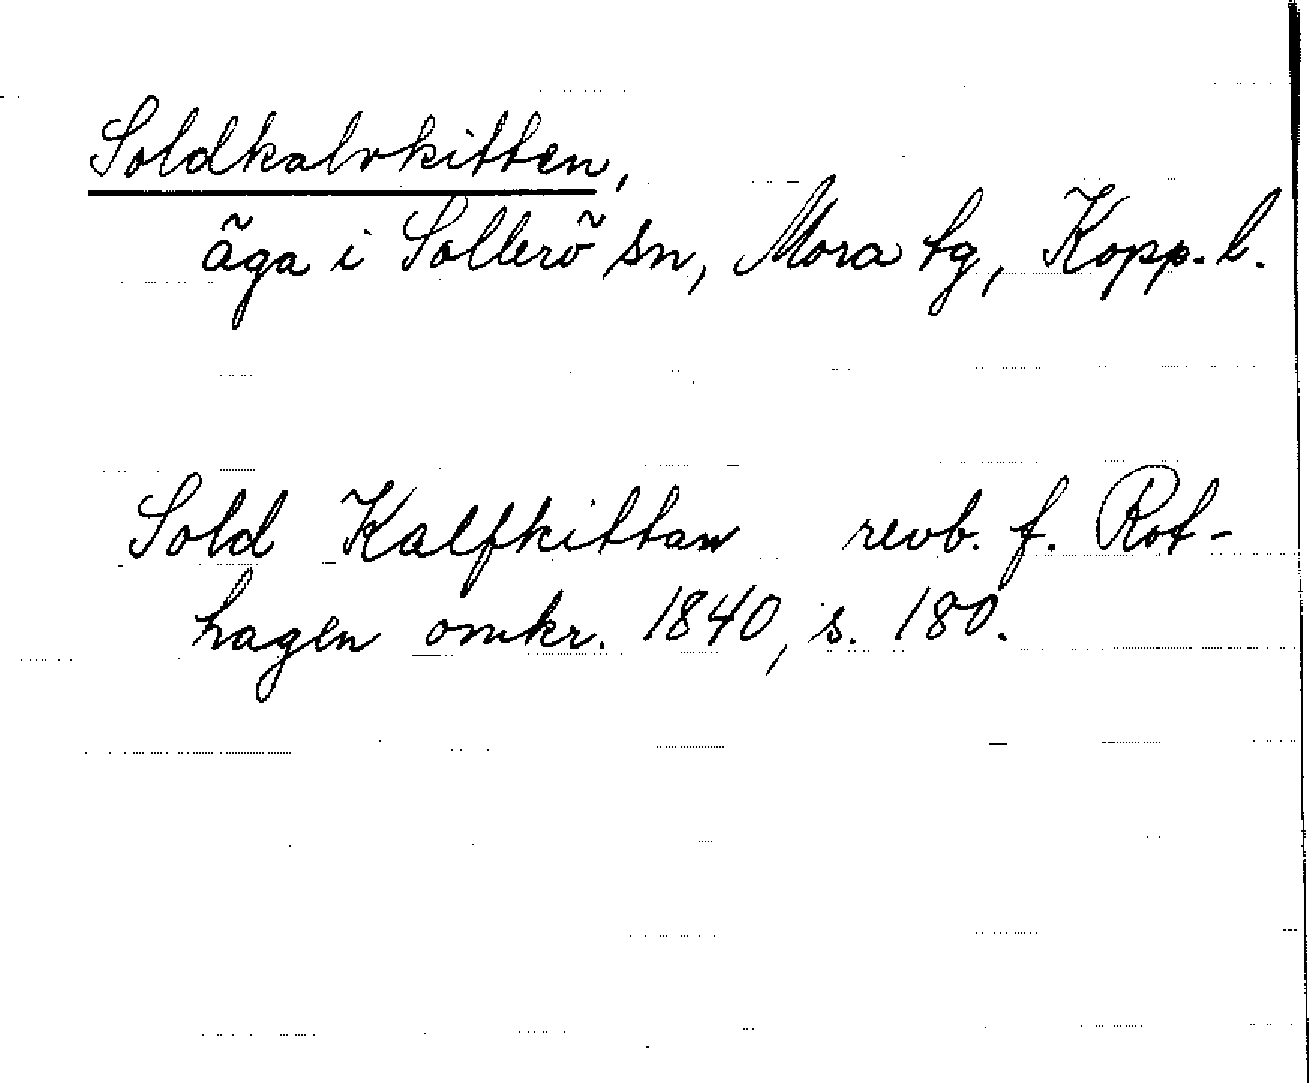 Soldkalvkitten,
äga i Sollerö sn, Mora tg, Kopp. l.
Sold Kalfkittan revb. f. Rot-
hagen omkr. 1840, s. 180.